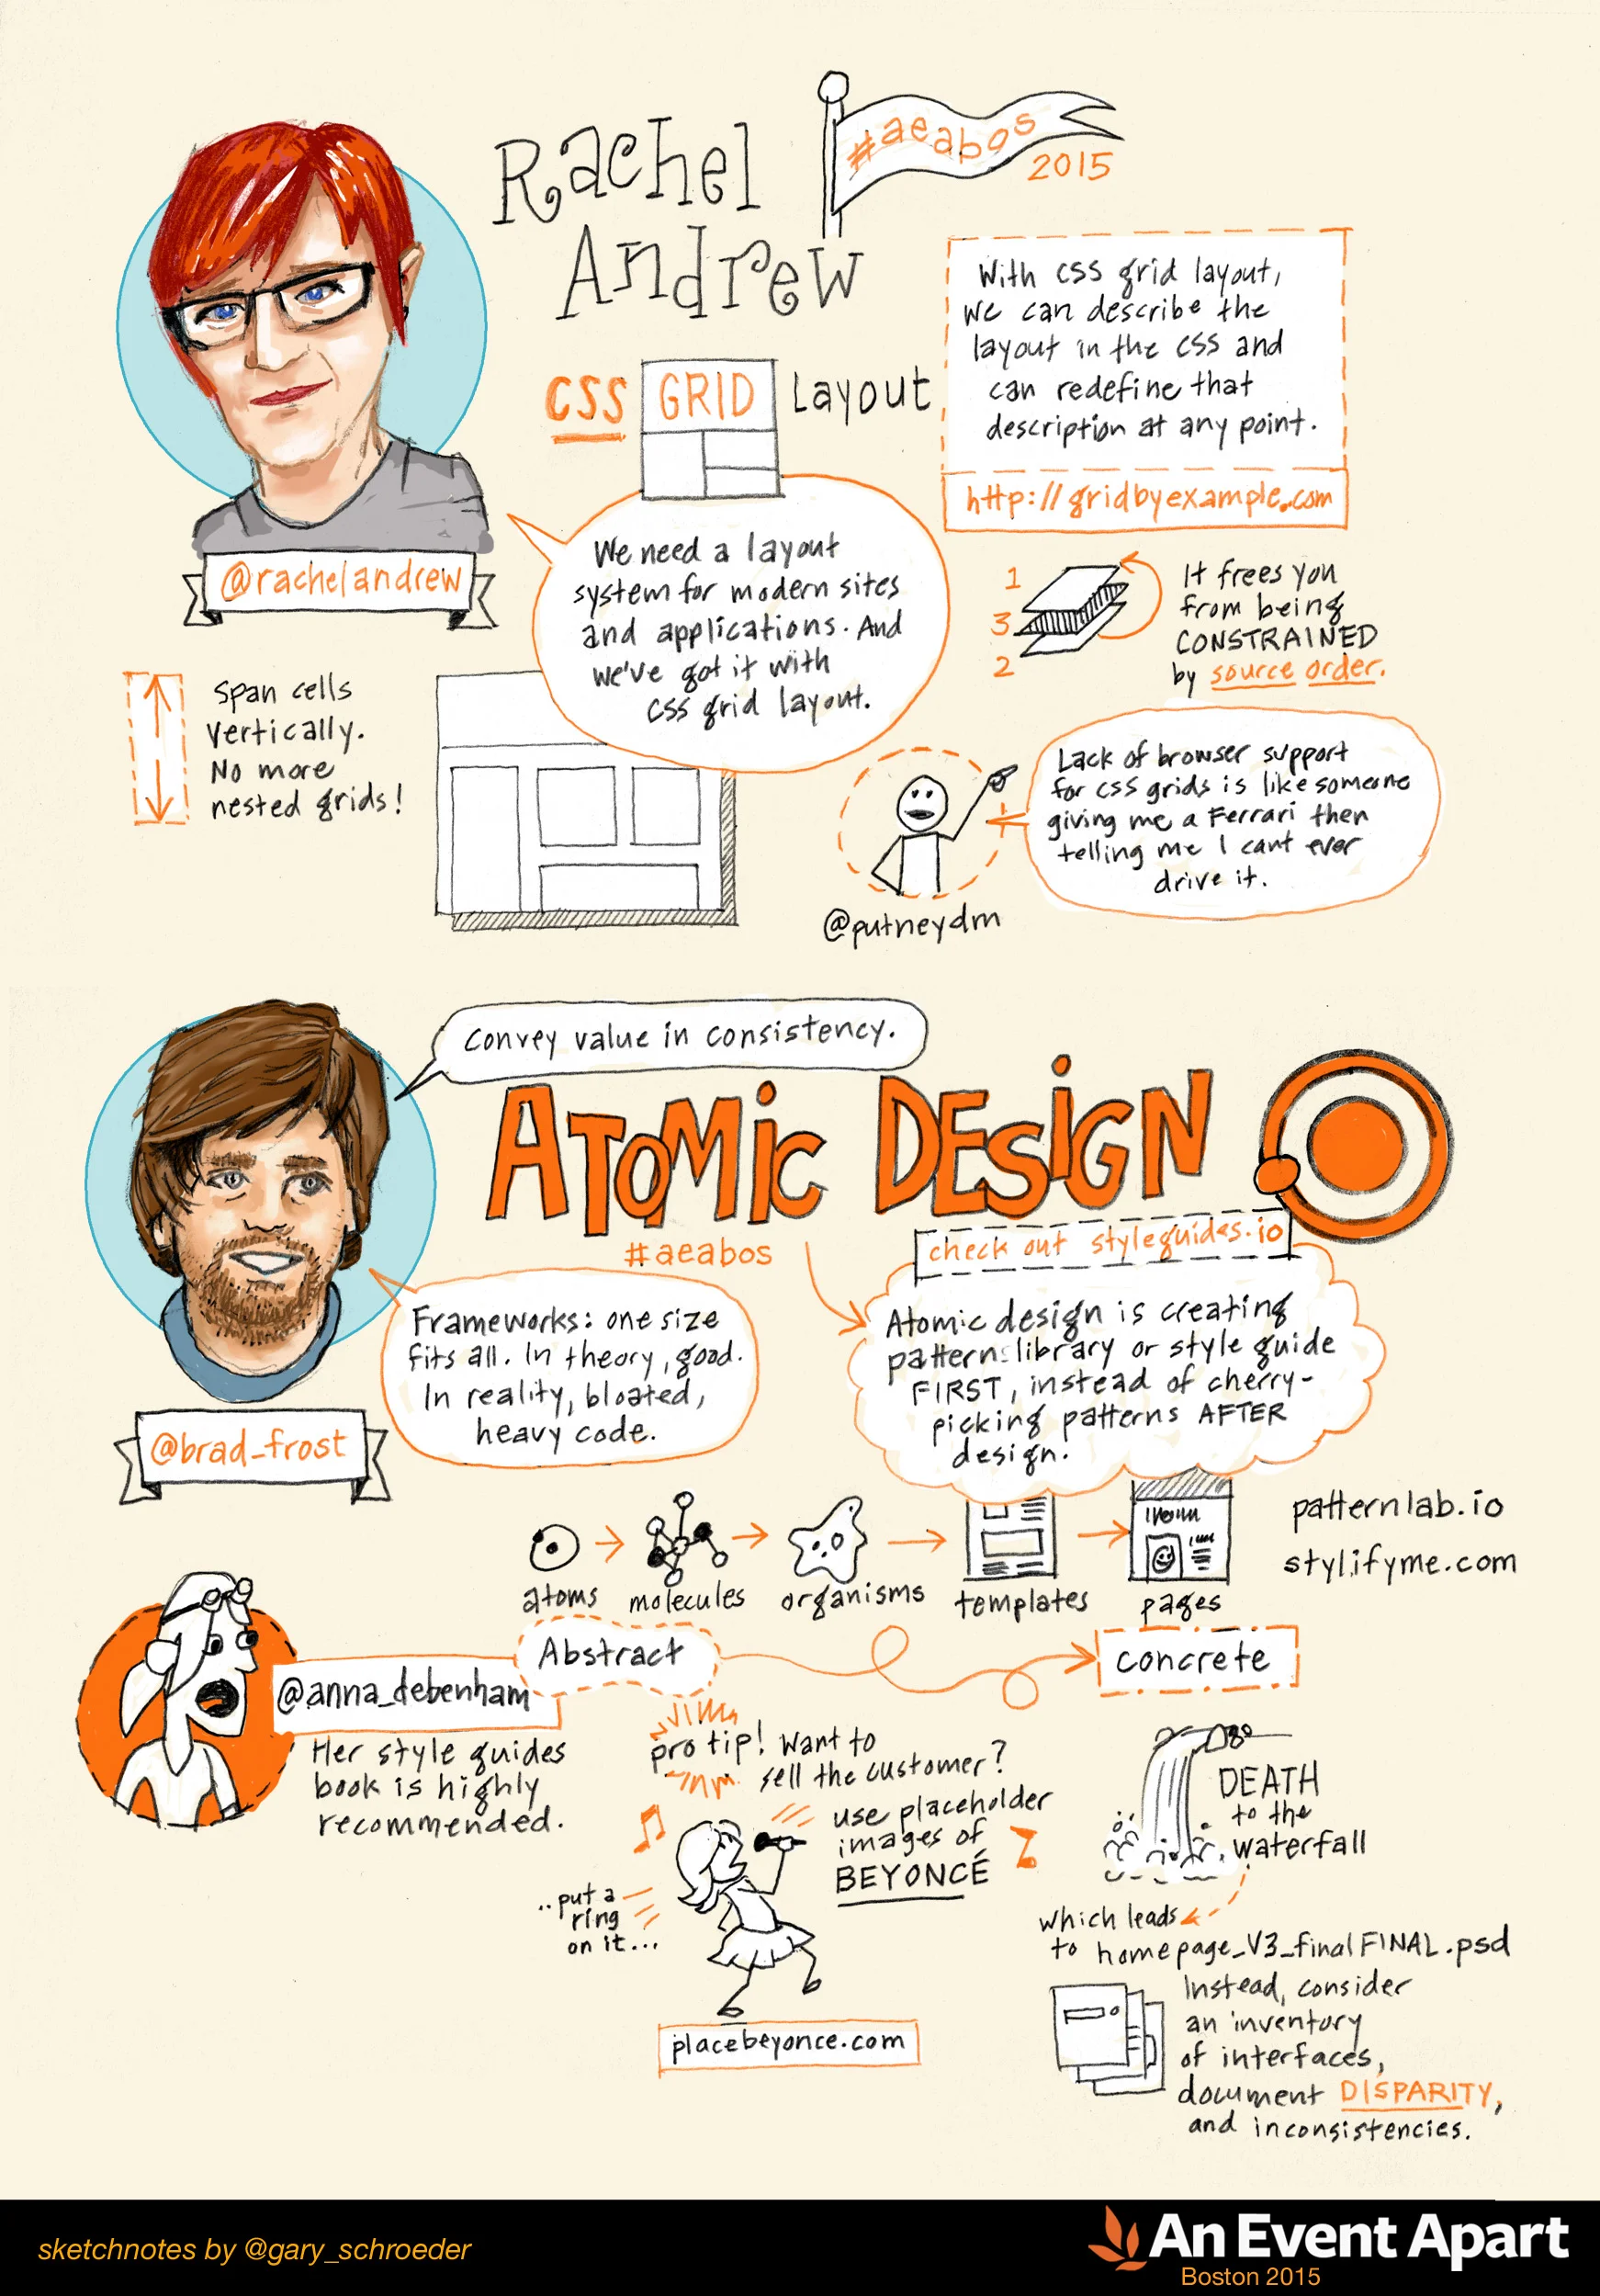 Rachel
Andrew
#aeabos
2015
CSS GRID Layout
With CSS grid layout,
we can describe the
layout in the CSS and
can redefine that
description at any point.
http://gridbyexample.com
@rachelandrew
We need a layout
system for modern sites
and applications. And
we've got it with
CSS grid layout.
1
3
2
It frees you
from being
CONSTRAINED
by source order.
Span cells
vertically.
No more
nested grids!
Lack of browser support
for CSS grids is like someone
giving me a Ferrari then
telling me I cant ever
drive it.
@putneydm
Convey value in consistency.
ATOMIC DESIGN
#aeabos
check out styleguides.io
Frameworks: one size
fits all. In theory, good.
In reality, bloated,
heavy code.
@brad_frost
Atomic design is creating
pattern library or style guide
FIRST, instead of cherry-
picking patterns AFTER
design.
patternlab.io
stylifyme.com
atoms
molecules
organisms
templates
pages
Abstract
concrete
@anna_debenham
Her style guides
book is highly
recommended.
pro tip! Want to
sell the customer?
use placeholder
images of
BEYONCÉ
..put a
ring
on it...
placebeyonce.com
DEATH
to the
waterfall
which leads
to homepage_V3_finalFINAL.psd
Instead, consider
an inventory
of interfaces,
document DISPARITY,
and inconsistencies.
sketchnotes by @gary_schroeder
An Event Apart
Boston 2015